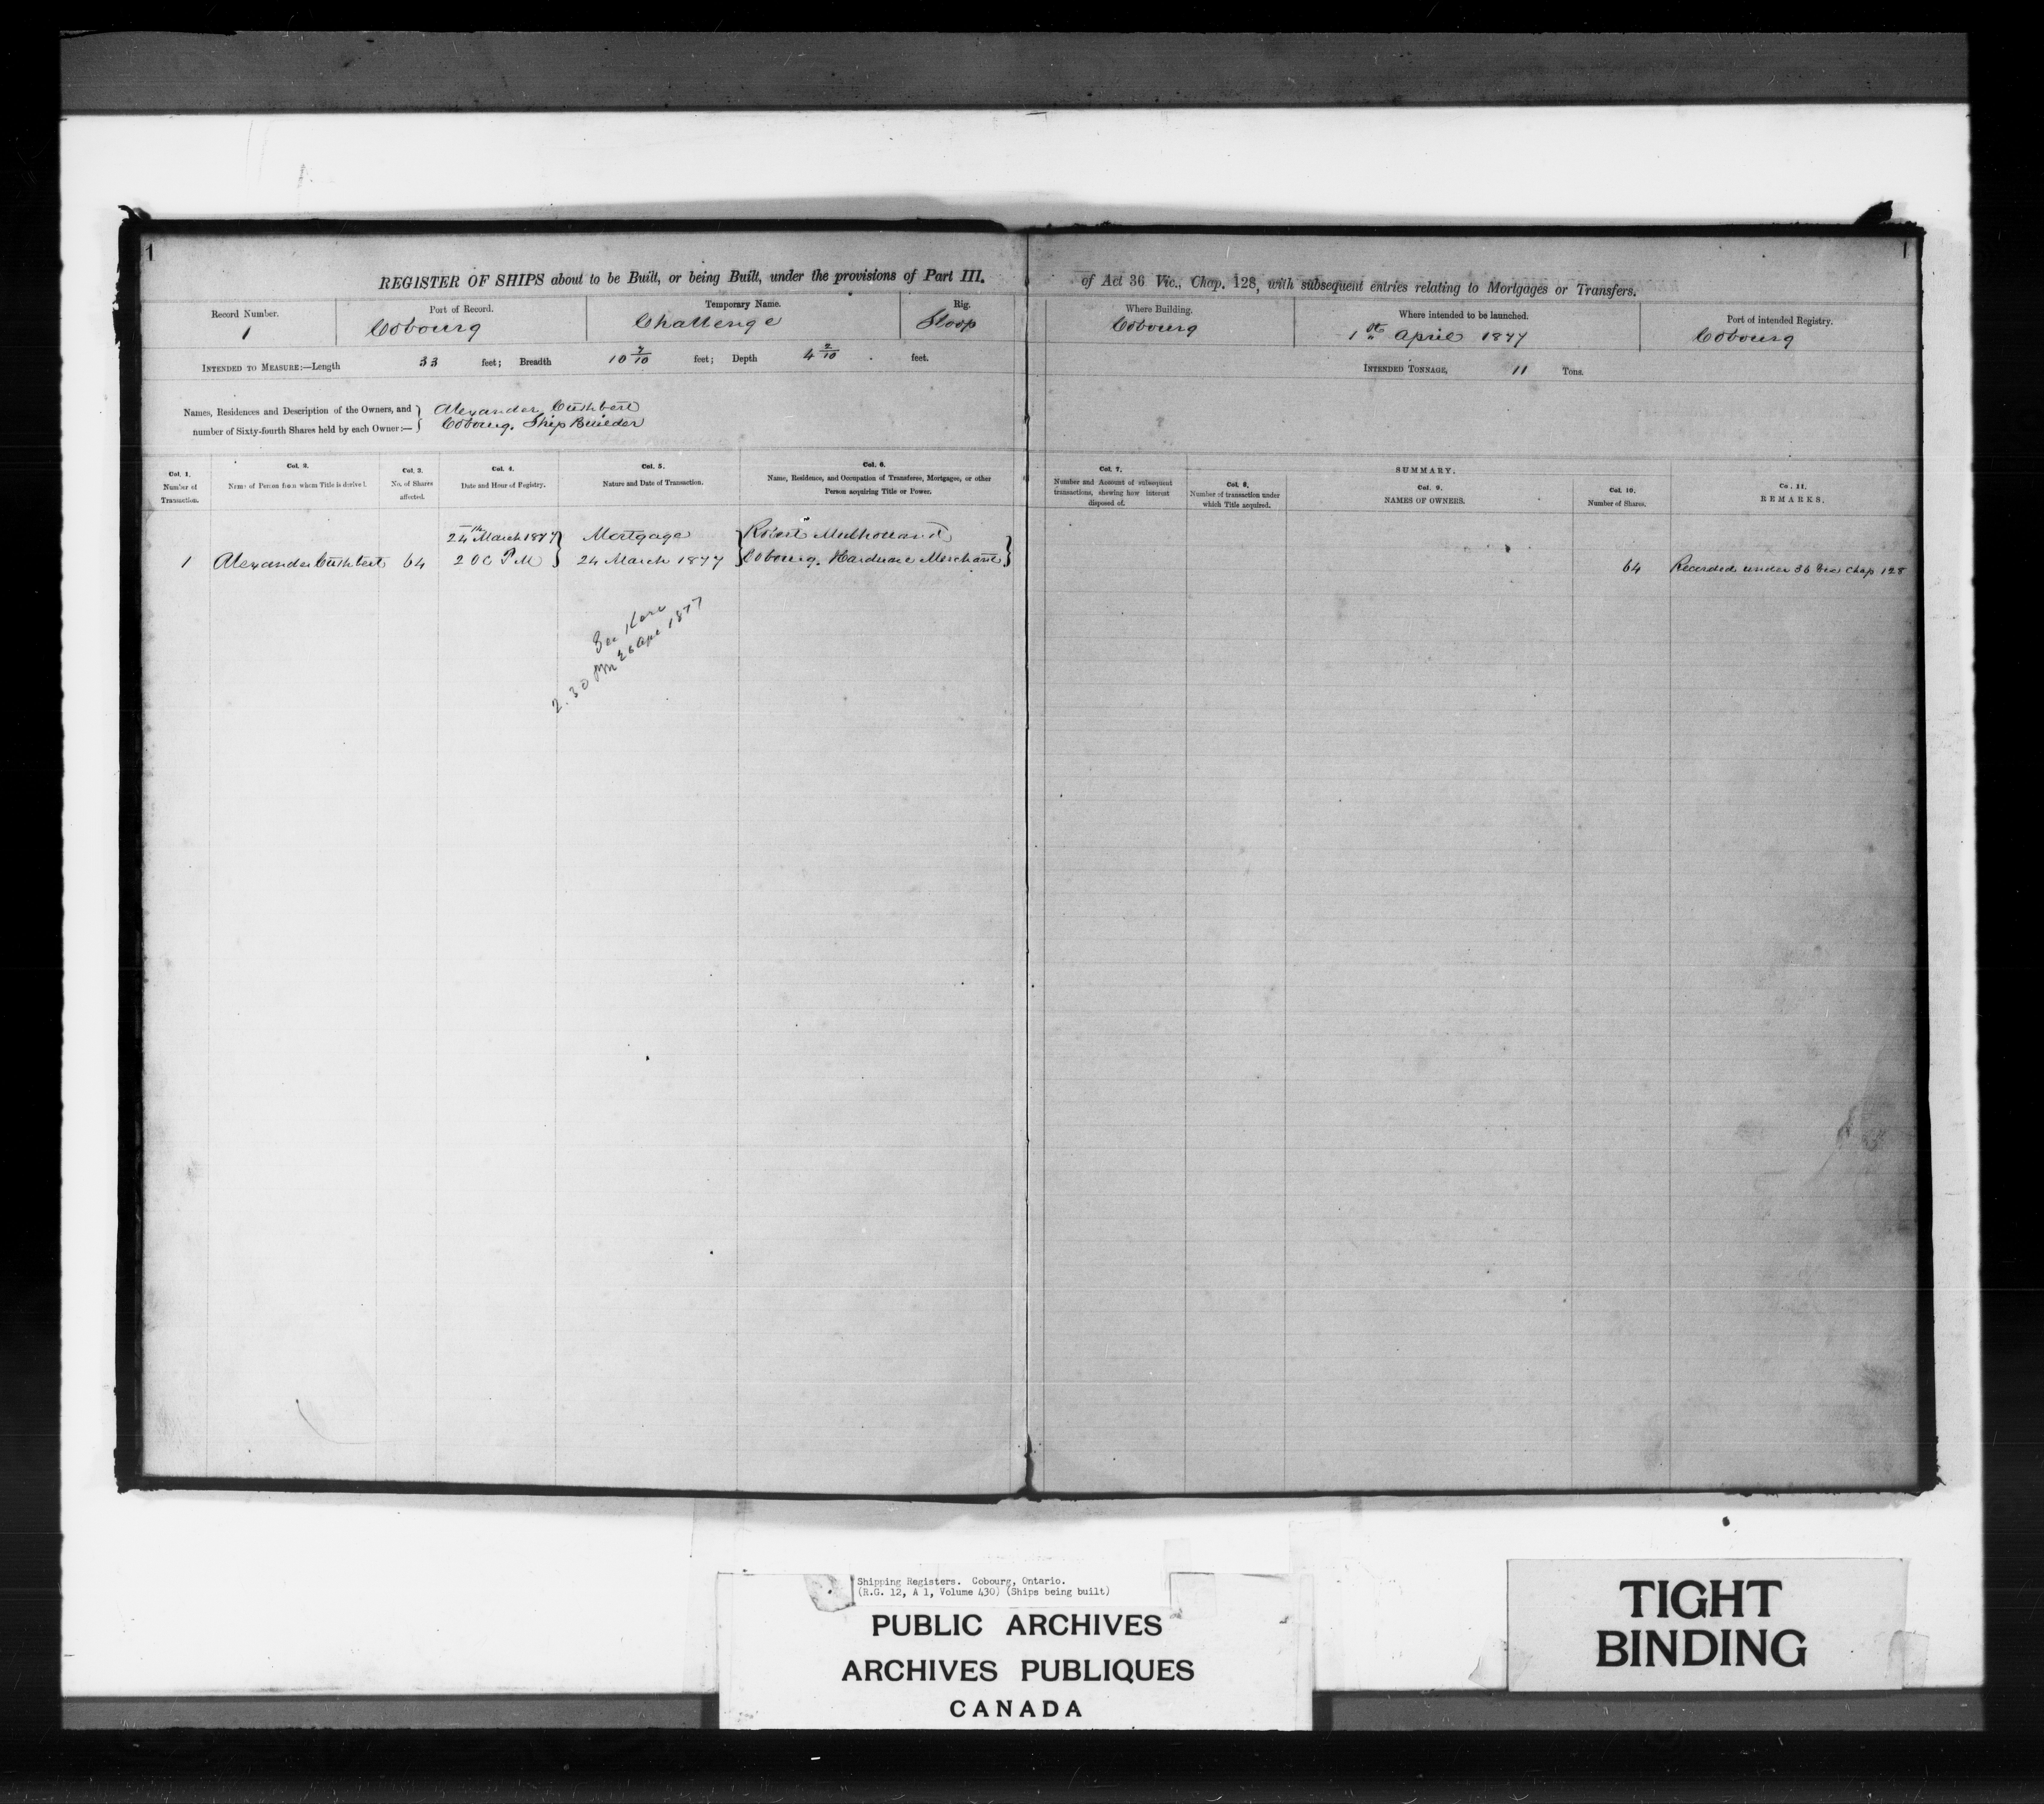 1
1
REGISTER OF SHIPS about to be Built, or being Built, under the provisions of Part III. of Act 36 Vic., Chap. 128, with subsequent entries relating to Mortgages or Transfers.
Record Number.
1
Port of Record.
Cobourg
Temporary Name.
Challenge
Rig.
Sloop
Where Building.
Cobourg
Where intended to be launched.
1st April 1877
Port of intended Registry.
Cobourg
INTENDED TO MEASURE:—Length 33 feet; Breadth 10 7/10 feet; Depth 4 2/10 feet.
INTENDED TONNAGE, 11 Tons.
Names, Residences and Description of the Owners, and
number of Sixty-fourth Shares held by each Owner:—
Alexander Cuthbert
Cobourg. Ship Builder
Col. 1.
Number of
Transaction.
Col. 2.
Name of Person from whom Title is derived.
Col. 3.
No. of Shares
affected.
Col. 4.
Date and Hour of Registry.
Col. 5.
Nature and Date of Transaction.
Col. 6.
Name, Residence, and Occupation of Transferee, Mortgagee, or other
Person acquiring Title or Power.
Col. 7.
Number and Account of subsequent
transactions, shewing how interest
disposed of.
SUMMARY.
Col. 8.
Number of transaction under
which Title acquired.
Col. 9.
NAMES OF OWNERS.
Col. 10.
Number of Shares.
Co. 11.
REMARKS.
24th March 1877 Mortgage Robert Mulholland
1 Alexander Cuthbert 64 2 OC PM 24 March 1877 Cobourg. Hardware Merchant
64 Recorded under 36 Chap 128
2.30 PM 26 Apr 1877
Shipping Registers. Cobourg, Ontario.
(R.G. 12, A 1, Volume 430) (Ships being built)
PUBLIC ARCHIVES
ARCHIVES PUBLIQUES
CANADA
TIGHT
BINDING